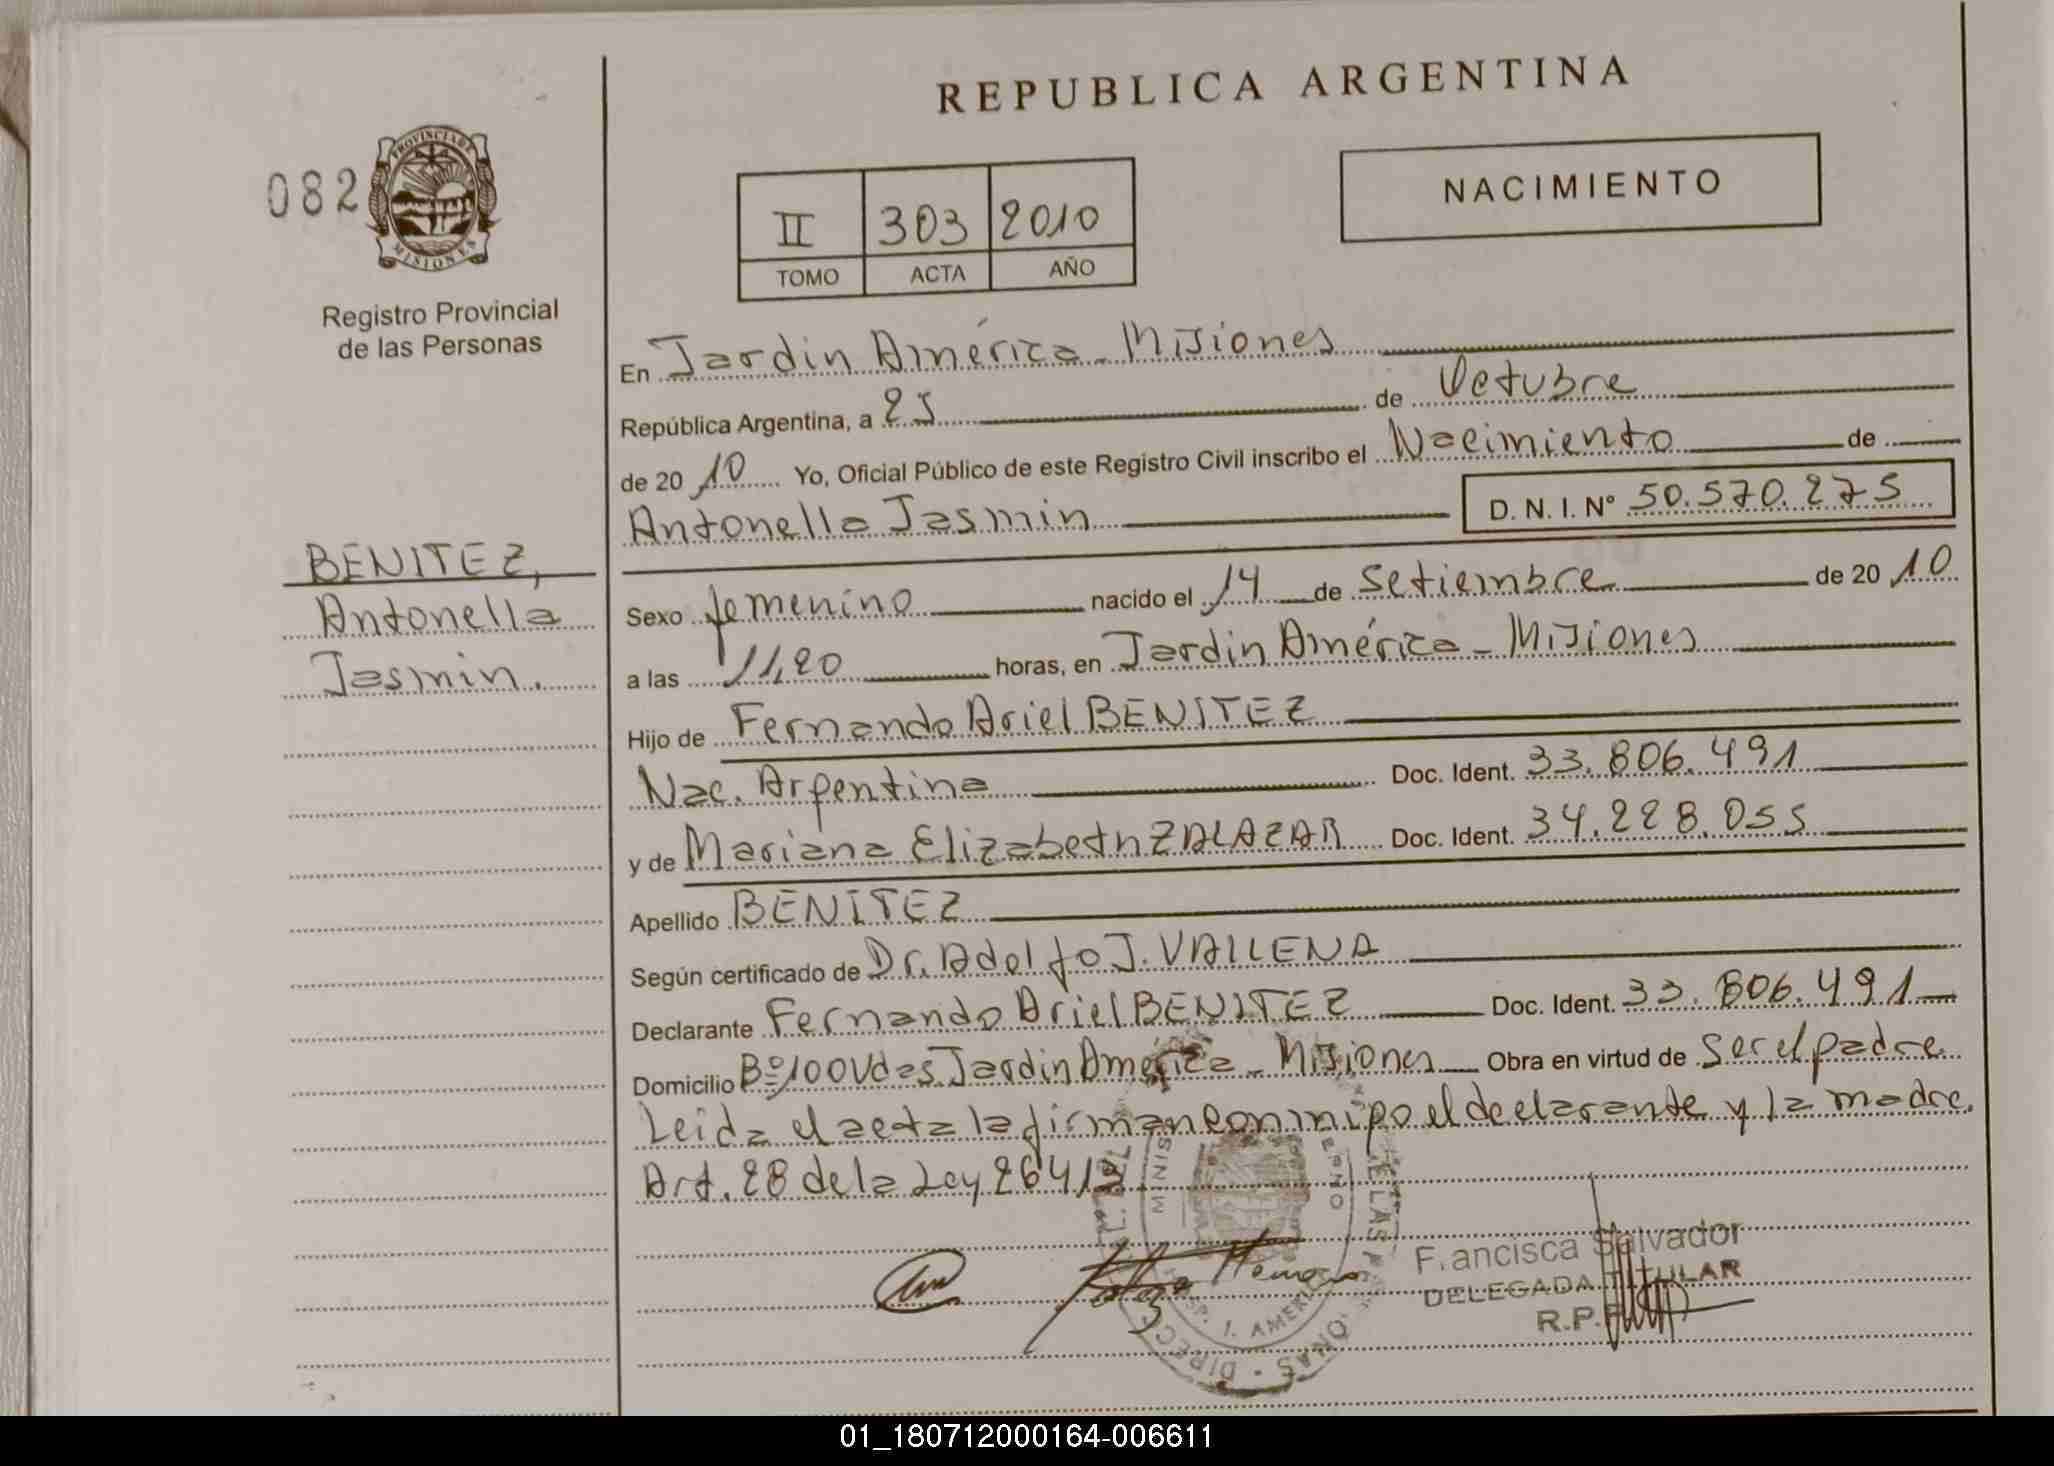 REPUBLICA ARGENTINA
082
PROVINCIA DE
MISIONES
Registro Provincial
de las Personas
II 303 2010
TOMO ACTA AÑO
NACIMIENTO
En Jardin América - Misiones
República Argentina, a 25 de Octubre
de 20 10 Yo, Oficial Público de este Registro Civil inscribo el Nacimiento de
Antonella Jasmin D. N. I. Nº 50.570.275
BENITEZ,
Antonella
Jasmin.
Sexo femenino nacido el 14 de setiembre de 20 10
a las 11,20 horas, en Jardin América - Misiones
Hijo de Fernando Ariel BENITEZ
Nac. Argentina Doc. Ident. 33.806.491
y de Mariana Elizabeth ZALAZAR Doc. Ident. 34.228.055
Apellido BENITEZ
Según certificado de Dr. Adolfo J. VALLENA
Declarante Fernando Ariel BENITEZ Doc. Ident. 33.806.491
Domicilio Bº 100 Vdas. Jardin América - Misiones Obra en virtud de ser el padre
Leida el acta la firman conmigo el declarante y la madre.
Art. 28 de la Ley 26413
Francisca Salvador
DELEGADA TITULAR
R.P.P.
01_180712000164-006611